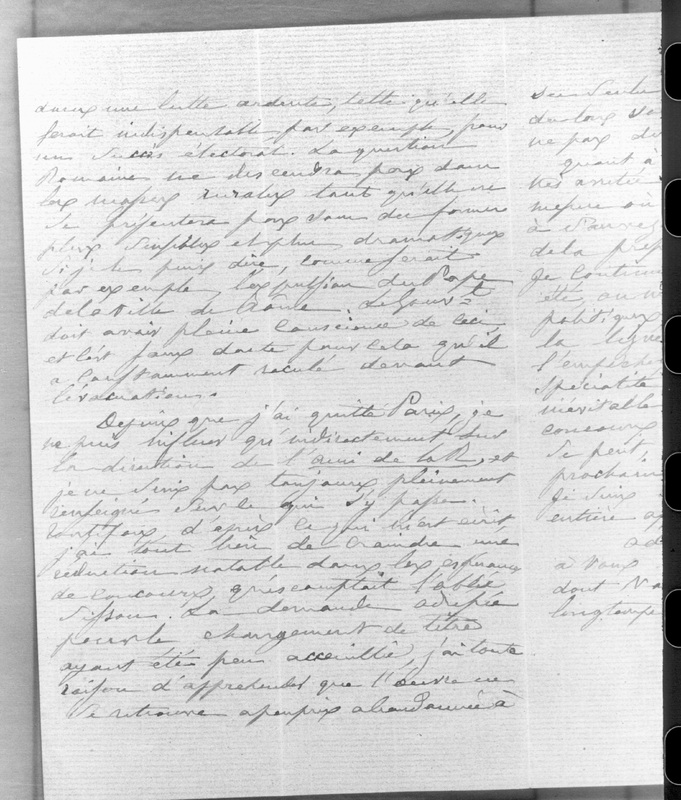 dans une lutte ardente, telle qu'elle
serait indispensable par exemple, pour
un succès électoral. La question
Romaine ne descendra pas dans
les masses rurales tant qu'elle ne
se présentera pas sous des formes
plus sensibles et plus dramatiques
si je le puis dire, comme serait
par exemple, l'expulsion du Pape
de la ville de Rome. Le Gouvt
doit avoir pleine conscience de ceci
et c'est sans doute pour cela qu'il
a constamment reculé devant
l'évacuation.
Depuis que j'ai quitté Paris, je
ne puis influer qu'indirectement sur
la direction de l'ami de la R, et
je ne suis pas toujours pleinement
renseigné sur ce qui s'y passe.
Toutefois d'après ce qui m'est écrit
j'ai tout lieu de craindre une
réduction notable dans les espérances
de concours, qu'escomptait l'abbé
Sisson. La demande adressée
pour le changement de titre
ayant été peu accueillie, j'ai toute
raison d'appréhender que l'œuvre ne
se retrouve à peu près abandonnée à
ses seules
ne pas
quant à
mesure où
à
de la
Je continue
été, ou
politiques
la ligne
l'empêcher
spécialité
inévitable
concours
se peut
prochain
Je suis
entière
à vous
dont
longtemps